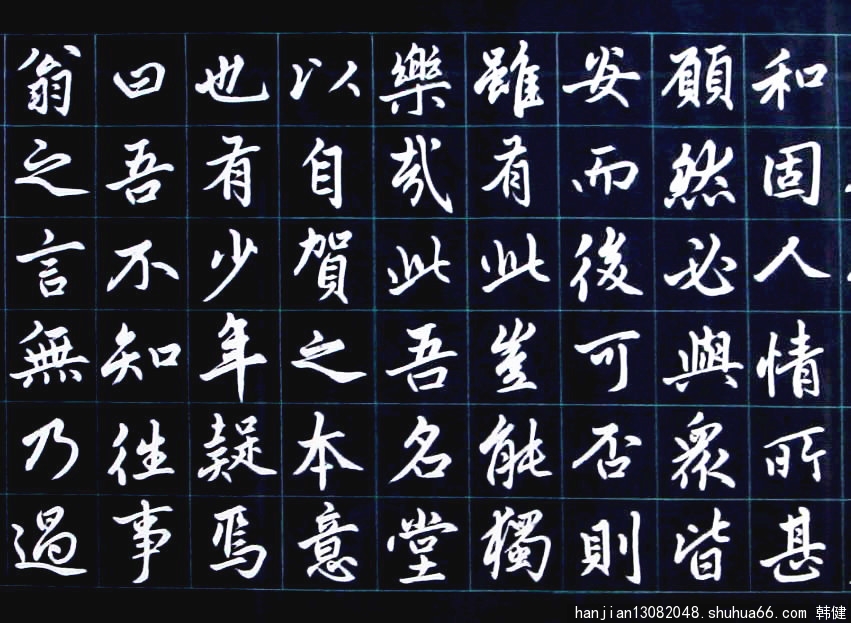 和固人情所甚
願然必與衆皆
安而後可否則
雖有此豈能獨
樂哉此吾名堂
以自賀之本意
也有少年疑焉
曰吾不知往事
翁之言無乃過
hanjian13082048.shuhua66.com 韩健